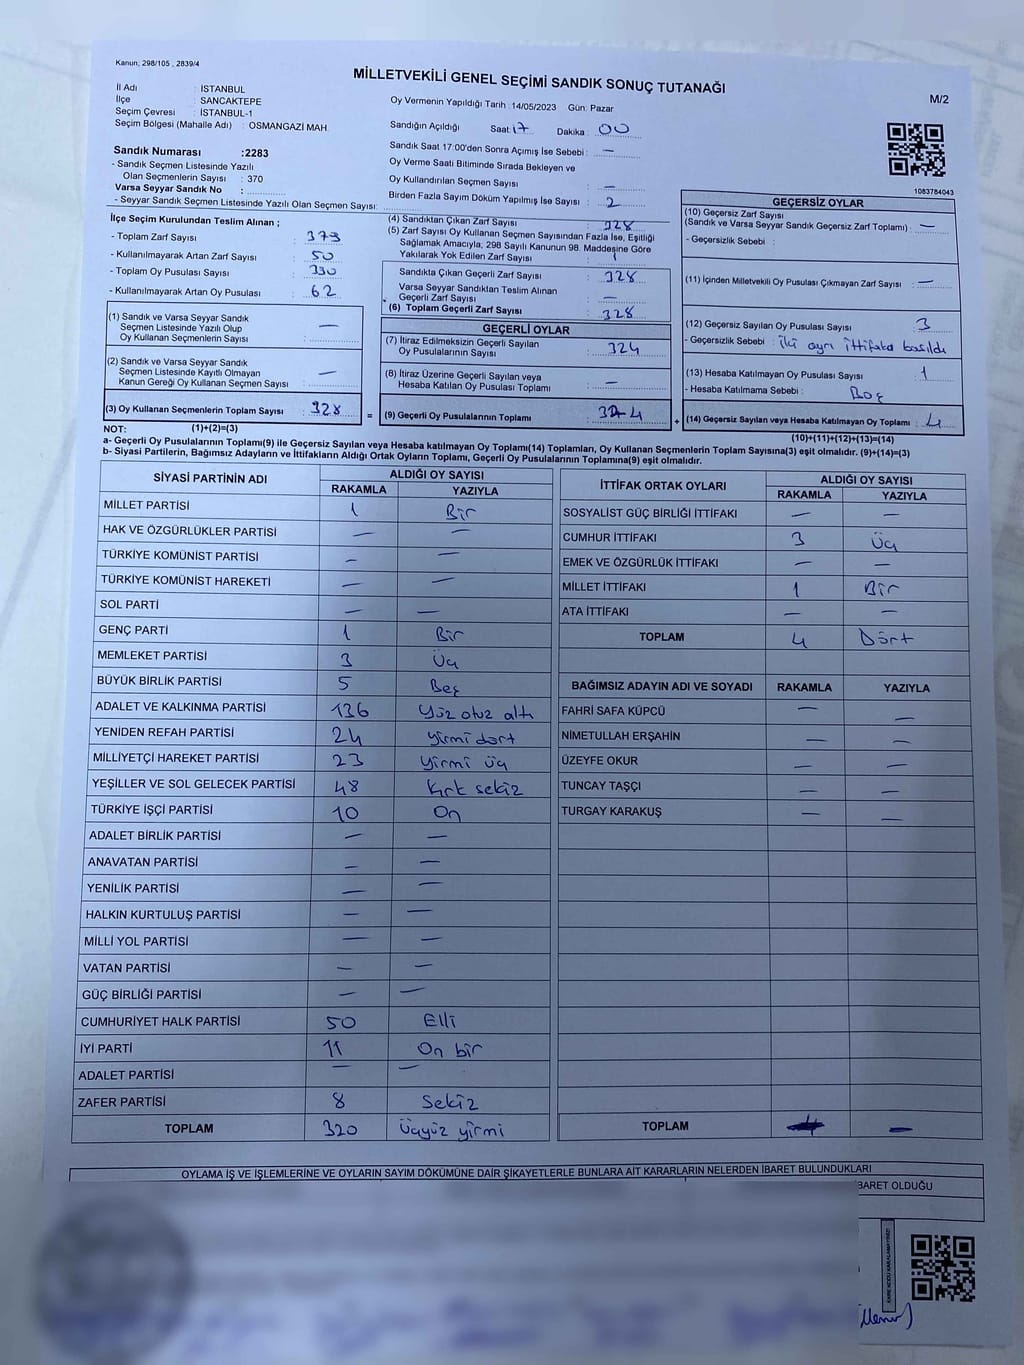 Kanun: 298/105 , 2839/4
MİLLETVEKİLİ GENEL SEÇİMİ SANDIK SONUÇ TUTANAĞI
M/2
İl Adı : İSTANBUL
İlçe : SANCAKTEPE
Seçim Çevresi : İSTANBUL-1
Seçim Bölgesi (Mahalle Adı) : OSMANGAZİ MAH.
Oy Vermenin Yapıldığı Tarih :14/05/2023 Gün: Pazar
Sandığın Açıldığı Saat 17 Dakika : 00
Sandık Saat 17:00'den Sonra Açımış İse Sebebi : —
Oy Verme Saati Bitiminde Sırada Bekleyen ve
Oy Kullandırılan Seçmen Sayısı : —
Birden Fazla Sayım Döküm Yapılmış İse Sayısı : 2
Sandık Numarası :2283
- Sandık Seçmen Listesinde Yazılı
Olan Seçmenlerin Sayısı : 370
Varsa Seyyar Sandık No :
- Seyyar Sandık Seçmen Listesinde Yazılı Olan Seçmen Sayısı:
1083784043
İlçe Seçim Kurulundan Teslim Alınan ;
- Toplam Zarf Sayısı : 379
- Kullanılmayarak Artan Zarf Sayısı : 50
- Toplam Oy Pusulası Sayısı : 390
- Kullanılmayarak Artan Oy Pusulası : 62
(1) Sandık ve Varsa Seyyar Sandık
Seçmen Listesinde Yazılı Olup
Oy Kullanan Seçmenlerin Sayısı : —
(2) Sandık ve Varsa Seyyar Sandık
Seçmen Listesinde Kayıtlı Olmayan
Kanun Gereği Oy Kullanan Seçmen Sayısı : —
(3) Oy Kullanan Seçmenlerin Toplam Sayısı : 328
(4) Sandıktan Çıkan Zarf Sayısı : 328
(5) Zarf Sayısı Oy Kullanan Seçmen Sayısından Fazla İse, Eşitliği
Sağlamak Amacıyla, 298 Sayılı Kanunun 98. Maddesine Göre
Yakılarak Yok Edilen Zarf Sayısı :
Sandıkta Çıkan Geçerli Zarf Sayısı : 328
Varsa Seyyar Sandıktan Teslim Alınan
Geçerli Zarf Sayısı : —
(6) Toplam Geçerli Zarf Sayısı : 328
GEÇERLİ OYLAR
(7) İtiraz Edilmeksizin Geçerli Sayılan
Oy Pusulalarının Sayısı : 324
(8) İtiraz Üzerine Geçerli Sayılan veya
Hesaba Katılan Oy Pusulası Toplamı : —
= (9) Geçerli Oy Pusulalarının Toplamı : 324 +
GEÇERSİZ OYLAR
(10) Geçersiz Zarf Sayısı
(Sandık ve Varsa Seyyar Sandık Geçersiz Zarf Toplamı) : —
- Geçersizlik Sebebi :
(11) İçinden Milletvekili Oy Pusulası Çıkmayan Zarf Sayısı : —
(12) Geçersiz Sayılan Oy Pusulası Sayısı : 3
- Geçersizlik Sebebi : İki ayrı ittifaka basıldı
(13) Hesaba Katılmayan Oy Pusulası Sayısı : 1
- Hesaba Katılmama Sebebi : Boş
(14) Geçersiz Sayılan veya Hesaba Katılmayan Oy Toplamı : 4
NOT: (1)+(2)=(3) (10)+(11)+(12)+(13)=(14)
a- Geçerli Oy Pusulalarının Toplamı(9) ile Geçersiz Sayılan veya Hesaba katılmayan Oy Toplamı(14) Toplamları, Oy Kullanan Seçmenlerin Toplam Sayısına(3) eşit olmalıdır. (9)+(14)=(3)
b- Siyasi Partilerin, Bağımsız Adayların ve İttifakların Aldığı Ortak Oyların Toplamı, Geçerli Oy Pusulalarının Toplamına(9) eşit olmalıdır.
SİYASİ PARTİNİN ADI ALDIĞI OY SAYISI
RAKAMLA YAZIYLA
MİLLET PARTİSİ 1 Bir
HAK VE ÖZGÜRLÜKLER PARTİSİ — —
TÜRKİYE KOMÜNİST PARTİSİ — —
TÜRKİYE KOMÜNİST HAREKETİ — —
SOL PARTİ — —
GENÇ PARTİ 1 Bir
MEMLEKET PARTİSİ 3 Üç
BÜYÜK BİRLİK PARTİSİ 5 Beş
ADALET VE KALKINMA PARTİSİ 136 Yüz otuz altı
YENİDEN REFAH PARTİSİ 24 yirmi dört
MİLLİYETÇİ HAREKET PARTİSİ 23 Yirmi üç
YEŞİLLER VE SOL GELECEK PARTİSİ 48 Kırk sekiz
TÜRKİYE İŞÇİ PARTİSİ 10 On
ADALET BİRLİK PARTİSİ — —
ANAVATAN PARTİSİ — —
YENİLİK PARTİSİ — —
HALKIN KURTULUŞ PARTİSİ — —
MİLLİ YOL PARTİSİ — —
VATAN PARTİSİ — —
GÜÇ BİRLİĞİ PARTİSİ — —
CUMHURİYET HALK PARTİSİ 50 Elli
İYİ PARTİ 11 On bir
ADALET PARTİSİ — —
ZAFER PARTİSİ 8 Sekiz
TOPLAM 320 Üçyüz yirmi
İTTİFAK ORTAK OYLARI ALDIĞI OY SAYISI
RAKAMLA YAZIYLA
SOSYALİST GÜÇ BİRLİĞİ İTTİFAKI — —
CUMHUR İTTİFAKI 3 Üç
EMEK VE ÖZGÜRLÜK İTTİFAKI — —
MİLLET İTTİFAKI 1 Bir
ATA İTTİFAKI — —
TOPLAM 4 Dört
BAĞIMSIZ ADAYIN ADI VE SOYADI RAKAMLA YAZIYLA
FAHRİ SAFA KÜPCÜ — —
NİMETULLAH ERŞAHİN — —
ÜZEYFE OKUR — —
TUNCAY TAŞÇI — —
TURGAY KARAKUŞ — —
TOPLAM —
OYLAMA İŞ VE İŞLEMLERİNE VE OYLARIN SAYIM DÖKÜMÜNE DAİR ŞİKAYETLERLE BUNLARA AİT KARARLARIN NELERDEN İBARET BULUNDUKLARI
BARET OLDUĞU
KAREKODU KARALAMAYINIZ!